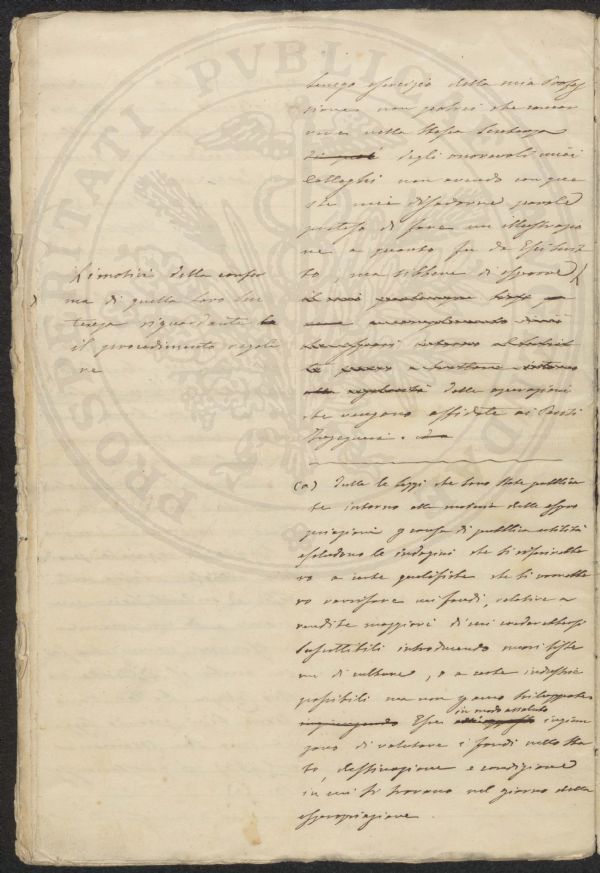 lungo esercizio della mia Profes
sione non potrei che concor
rere nella stessa sentenza
degli onorevoli miei
Colleghi non avendo con que
ste mie disadorne parole
pretesa di fare un illustrazio
ne a quanto fu da Essi scrit
to, ma sibbene di esporre
delle operazioni
che vengono affidate ai Periti
Ingegneri.
I motivi della confer
ma di quella loro sen
tenza riguardante
il procedimento regola
re
(a) Tutte le leggi che sono state pubblica
te intorno alla materia delle espro
priazioni per causa di pubblica utilità
escludono le indagini che si riferirebbe
ro a certe qualifiche che si vorrebbe
ro ravvisare nei fondi, relative a
rendite maggiori di cui crederebbersi
suscettibili introducendo nuovi siste
mi di cultura, o a certe industrie
possibili ma non per anco sviluppate
Esse in modo assoluto ingiun
gono di valutare i fondi nello sta
to, destinazione e condizione
in cui si trovano nel giorno della
espropriazione.
PROSPERITATI PUBLICAE